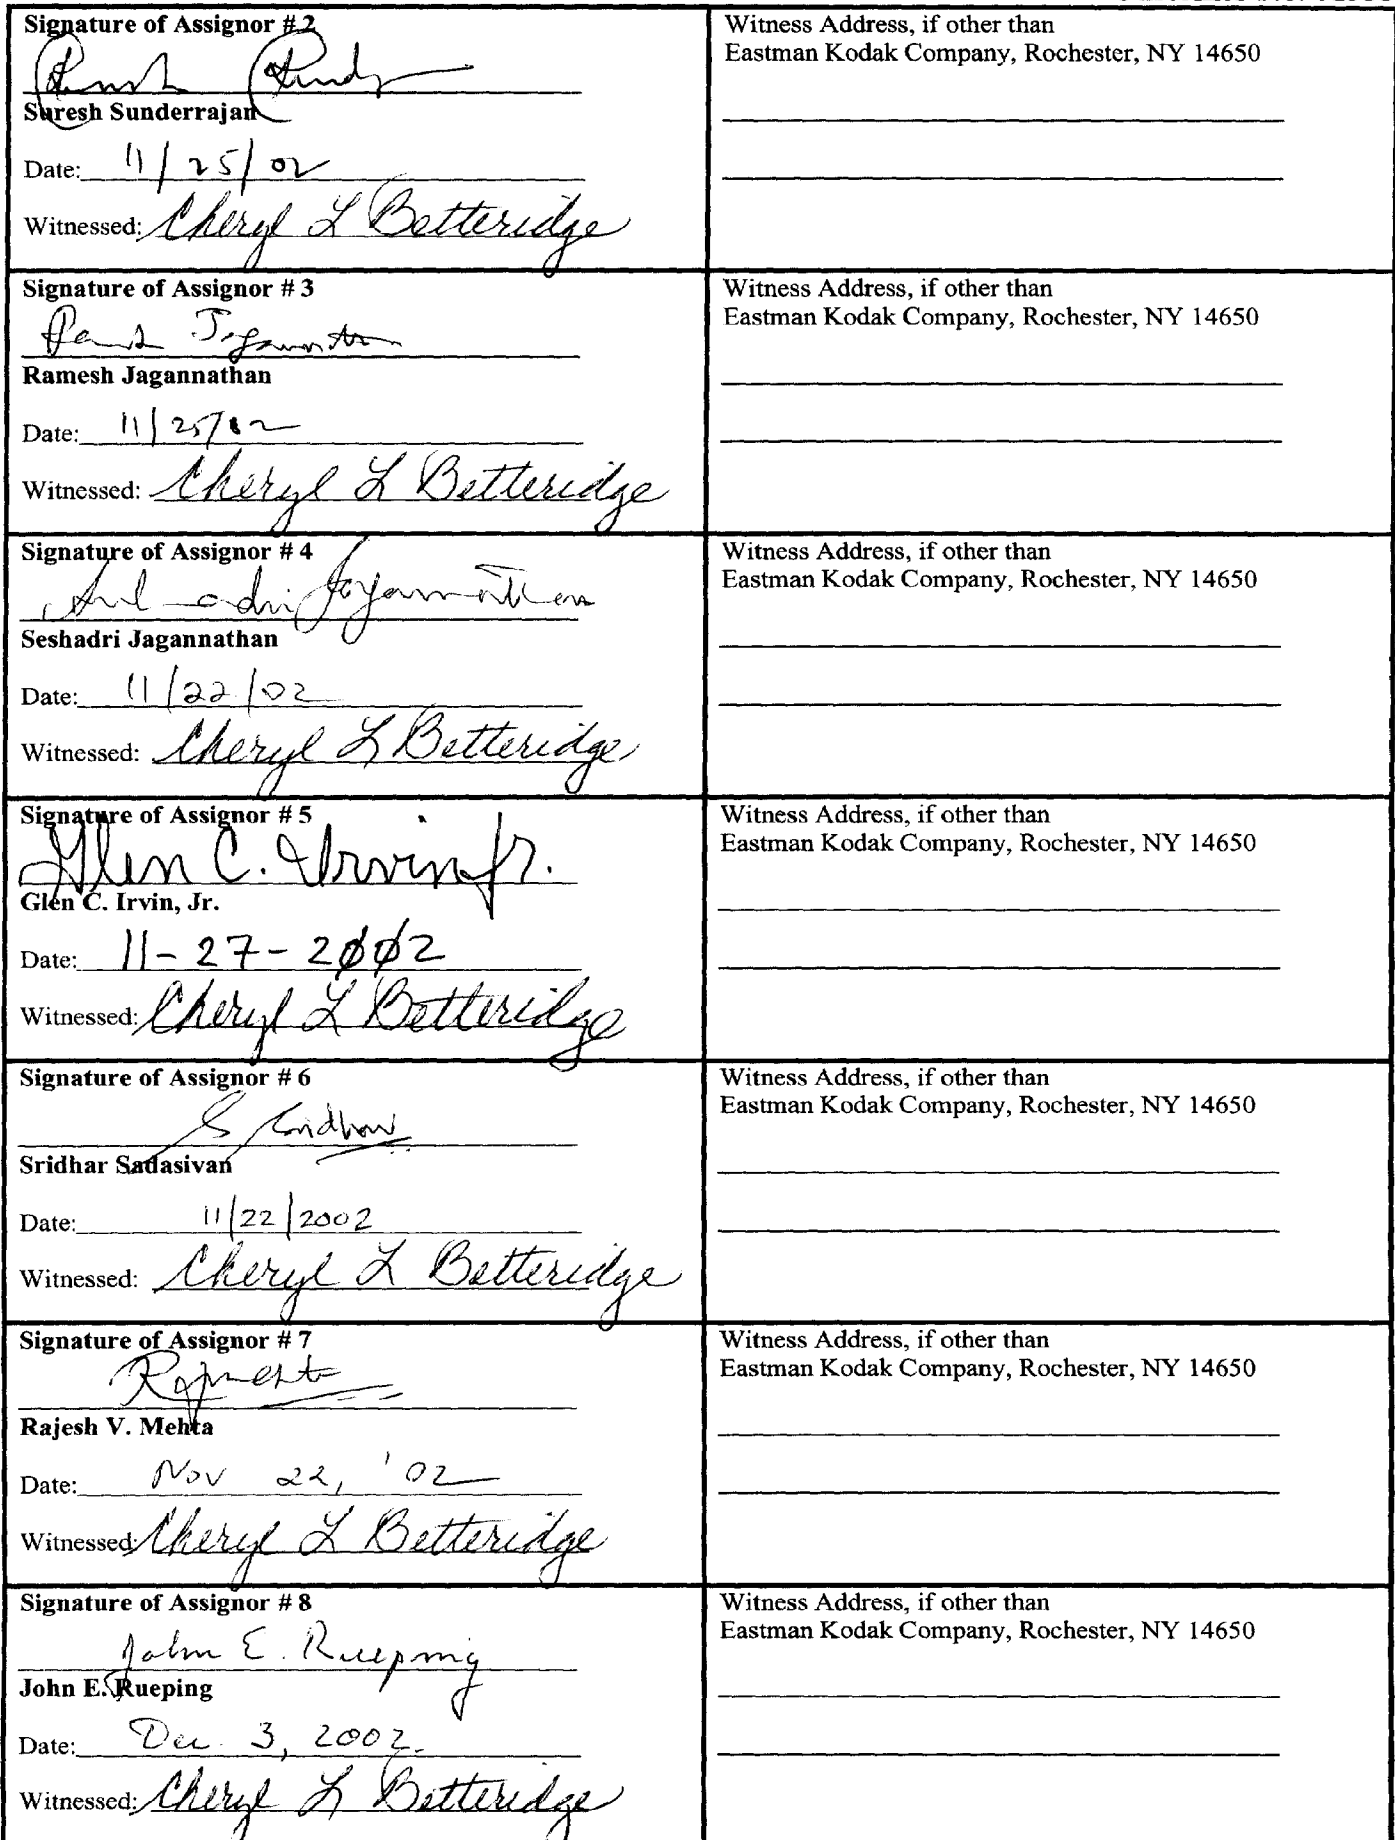 Signature of Assignor # 2
Suresh Sunderrajan
Date: 11/25/02
Witnessed: Cheryl L Betteridge
Witness Address, if other than
Eastman Kodak Company, Rochester, NY 14650
Signature of Assignor # 3
Ramesh Jagannathan
Date: 11/25/02
Witnessed: Cheryl L Betteridge
Witness Address, if other than
Eastman Kodak Company, Rochester, NY 14650
Signature of Assignor # 4
Seshadri Jagannathan
Date: 11/22/02
Witnessed: Cheryl L Betteridge
Witness Address, if other than
Eastman Kodak Company, Rochester, NY 14650
Signature of Assignor # 5
Glen C. Irvin Jr.
Glen C. Irvin, Jr.
Date: 11-27-2002
Witnessed: Cheryl L Betteridge
Witness Address, if other than
Eastman Kodak Company, Rochester, NY 14650
Signature of Assignor # 6
S Sridhar
Sridhar Sadasivan
Date: 11/22/2002
Witnessed: Cheryl L Betteridge
Witness Address, if other than
Eastman Kodak Company, Rochester, NY 14650
Signature of Assignor # 7
Rajesh V. Mehta
Date: Nov 22, '02
Witnessed: Cheryl L Betteridge
Witness Address, if other than
Eastman Kodak Company, Rochester, NY 14650
Signature of Assignor # 8
John E. Rueping
John E. Rueping
Date: Dec. 3, 2002.
Witnessed: Cheryl L Betteridge
Witness Address, if other than
Eastman Kodak Company, Rochester, NY 14650